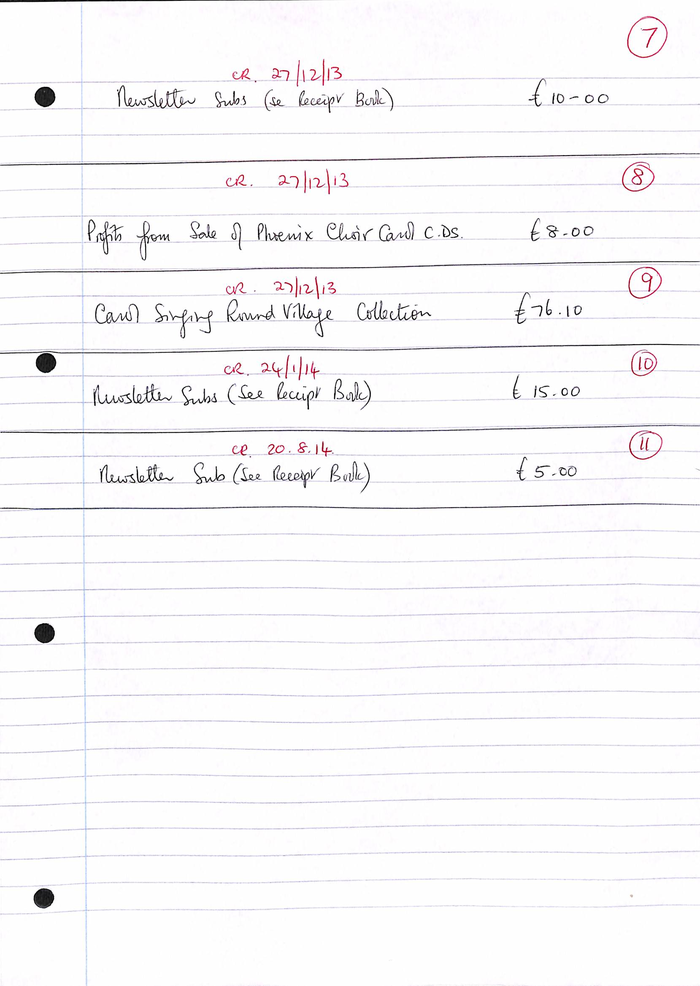 7
CR. 27/12/13
Newsletter Subs (se Receipt Book) £10-00
CR. 27/12/13 8
Profits from Sale of Phoenix Choir Carol C.DS. £8-00
CR. 27/12/13 9
Carol Singing Round Village Collection £76.10
CR. 24/1/14 10
Newsletter Subs (See Receipt Book) £15.00
CR. 20.8.14. 11
Newsletter Sub (See Receipt Book) £5.00